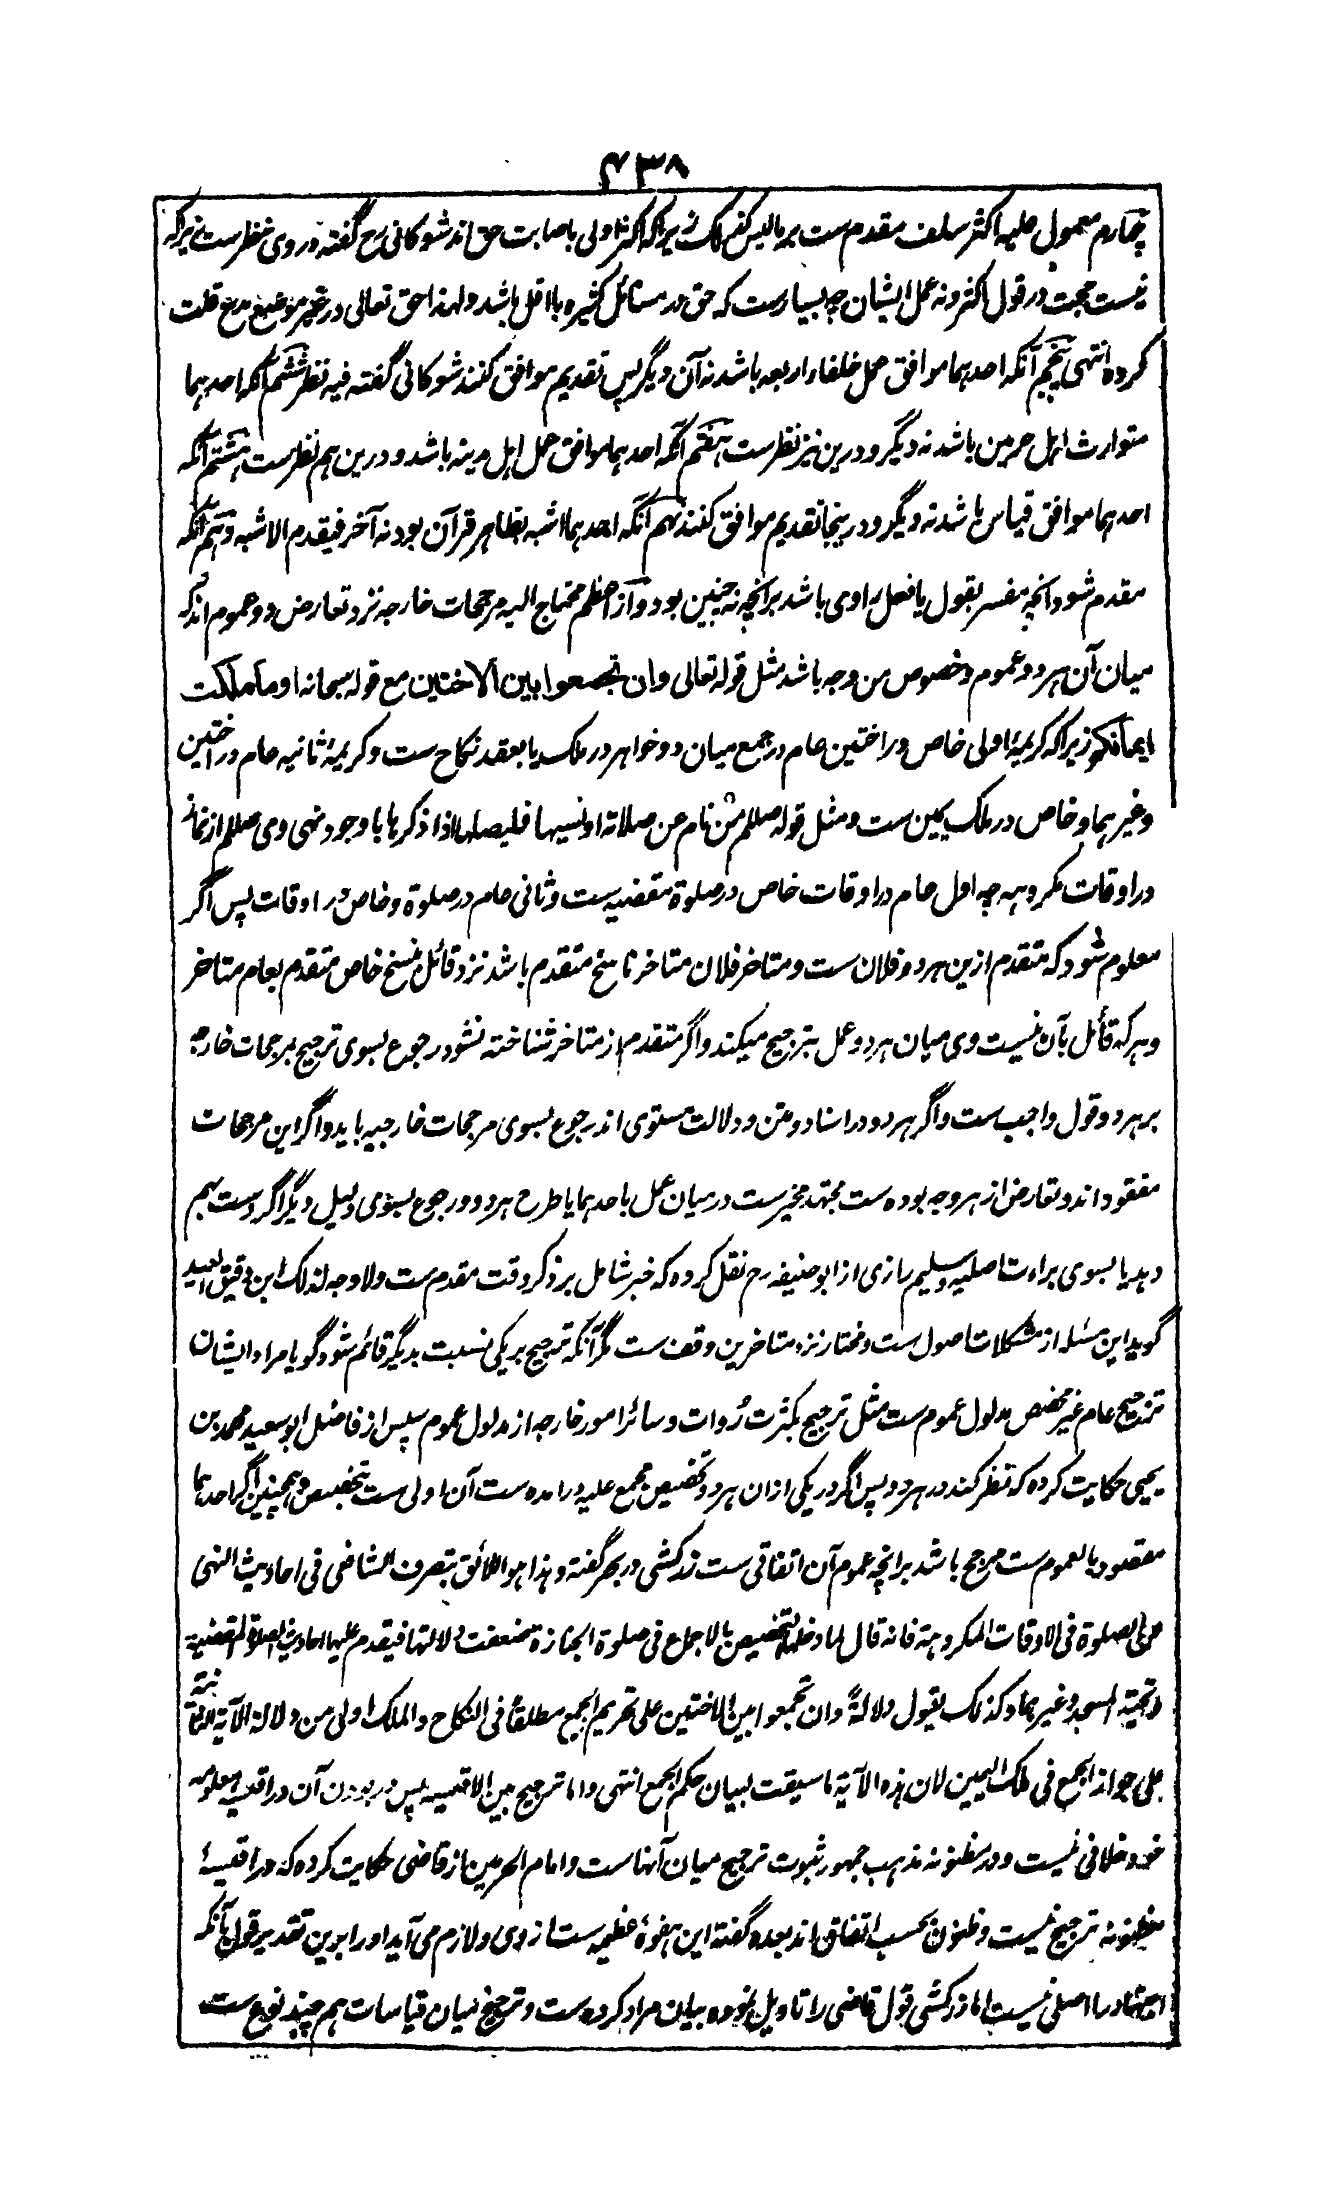 ۴۳۸
چهارم معمول علیه اکثر سلف مقدم ست بر ما لیس کذلک زیراکه اکثر اولی باصابت حق اند شوکانی رح گفته در وی نظر ست زیراکه
نیست حجت در قول اکثر و نه عمل ایشان چه بسیار ست که حق در مسائل کثیره با اقل باشد و لهذا حق تعالی در غیر موضع مدح قلت
کرده انتهی پنجم آنکه احدهما موافق عمل خلفاء اربعه باشد نه آن دیگر پس تقدیم موافق کنند شوکانی گفته فیه نظر ششم آنکه احدهما
متوارث اهل حرمین باشد نه دیگر و درین نیز نظر ست هفتم آنکه احدهما موافق عمل اهل مدینه باشد و درین هم نظر ست هشتم آنکه
احدهما موافق قیاس باشد نه دیگر و درینجا تقدیم موافق کنند نهم آنکه احدهما اشبه بظاهر قرآن بود نه آخر فیقدم الاشبه دهم آنکه
مقدم شود آنچه مفسر بقول یا فعل راوی باشد بر آنچه نه چنین بود و از اعظم محتاج الیه مرجحات خارجه نزد تعارض دو عموم اند که
میان آن هر دو عموم و خصوص من وجه باشد مثل قوله تعالی وان تجمعوا بین الاختین مع قوله سبحانه او ما ملکت
ایمانکم زیراکه کریمهٔ اولی خاص در اختین عام در جمع میان دو خواهر در ملک یا بعقد نکاح ست و کریمهٔ ثانیه عام در اختین
و غیرهما و خاص در ملک یمین ست و مثل قوله صللم من نام عن صلاته او نسیها فلیصلها اذا ذکرها با وجود نهی وی صللم از نماز
در اوقات مکروهه چه اول عام در اوقات خاص در صلوة مقضیه ست و ثانی عام در صلوة و خاص در اوقات پس اگر
معلوم شود که متقدم ازین هر دو فلان ست و متاخر فلان متاخر ناسخ متقدم باشد نزد قائل بنسخ خاص متقدم بعام متاخر
و هر که قائل بآن نیست وی میان هر دو عمل بترجیح میکند و اگر متقدم از متاخر شناخته نشود رجوع بسوی ترجیح بمرجحات خارجه
بر هر دو قول واجب ست و اگر هر دو در اسناد و متن و دلالت مستوی اند رجوع بسوی مرجحات خارجیه باید و اگر این مرجحات
مفقود اند و تعارض از هر وجه بوده ست مجتهد مخیر ست در میان عمل باحدهما یا طرح هر دو و رجوع بسوی دلیل دیگر اگر دست بهم
دهد یا بسوی براءت اصلیه و سلیم رازی از ابو حنیفه رح نقل کرده که خبر شامل بر ذکر وقت مقدم ست ولا وجه لذلک ابن دقیق العید
گوید این مسئله از مشکلات اصول ست و مختار نزد متاخرین وقف ست مگر آنکه ترجیح بر یکی نسبت بدیگر قائم شود گویا مراد ایشان
ترجیح عام غیر مخصص مدلول عموم ست مثل ترجیح بکثرت رُوات و سائر امور خارجه از مدلول عموم سپس از فاضل ابو سعید محمد بن
یحیی حکایت کرده که نظر کند در هر دو پس اگر در یکی ازان هر دو تخصیص مجمع علیه در آمده ست آن اولی ست بتخصیص و همچنین اگر احدهما
مقصود بالعموم ست مرجح باشد بر آنچه عموم آن اتفاقی ست زرکشی در بحر گفته و هذا هو اللائق بتصرف الشافعی فی احادیث النهی
عن الصلوة فی الاوقات المکروهة فانه قال لما دخلها التخصیص بالاجماع فی صلوة الجنازة ضعفت دلالتها فیقدم علیها احادیث الصلوة المقضیة
و تحیة المسجد و غیرهما و کذلک یقول دلالةً وان تجمعوا بین الاختین علی تحریم الجمع مطلقا فی النکاح والملک اولی من دلالة الآیة الثانیة
علی جواز الجمع فی ملک الیمین لان هذه الآیة ما سیقت لبیان حکم الجمع انتهی و اما ترجیح بین الاقیسه پس در بودن آن در اقیسه معلومه
خود خلافی نیست و در مظنونه مذهب جمهور ثبوت ترجیح میان آنهاست و امام الحرمین از قاضی حکایت کرده که در اقیسهٔ
مظنونه ترجیح نیست و ظنون بحسب اتفاق اند بعده گفته این هفوهٔ عظیمه ست از وی و لازم می آید او را برین تقدیر قول بآنکه
اجتهاد را اصلی نیست اما زرکشی قول قاضی را تاویل نموده بیان مراد کرده ست و ترجیح میان قیاسات هم چند نوع ست